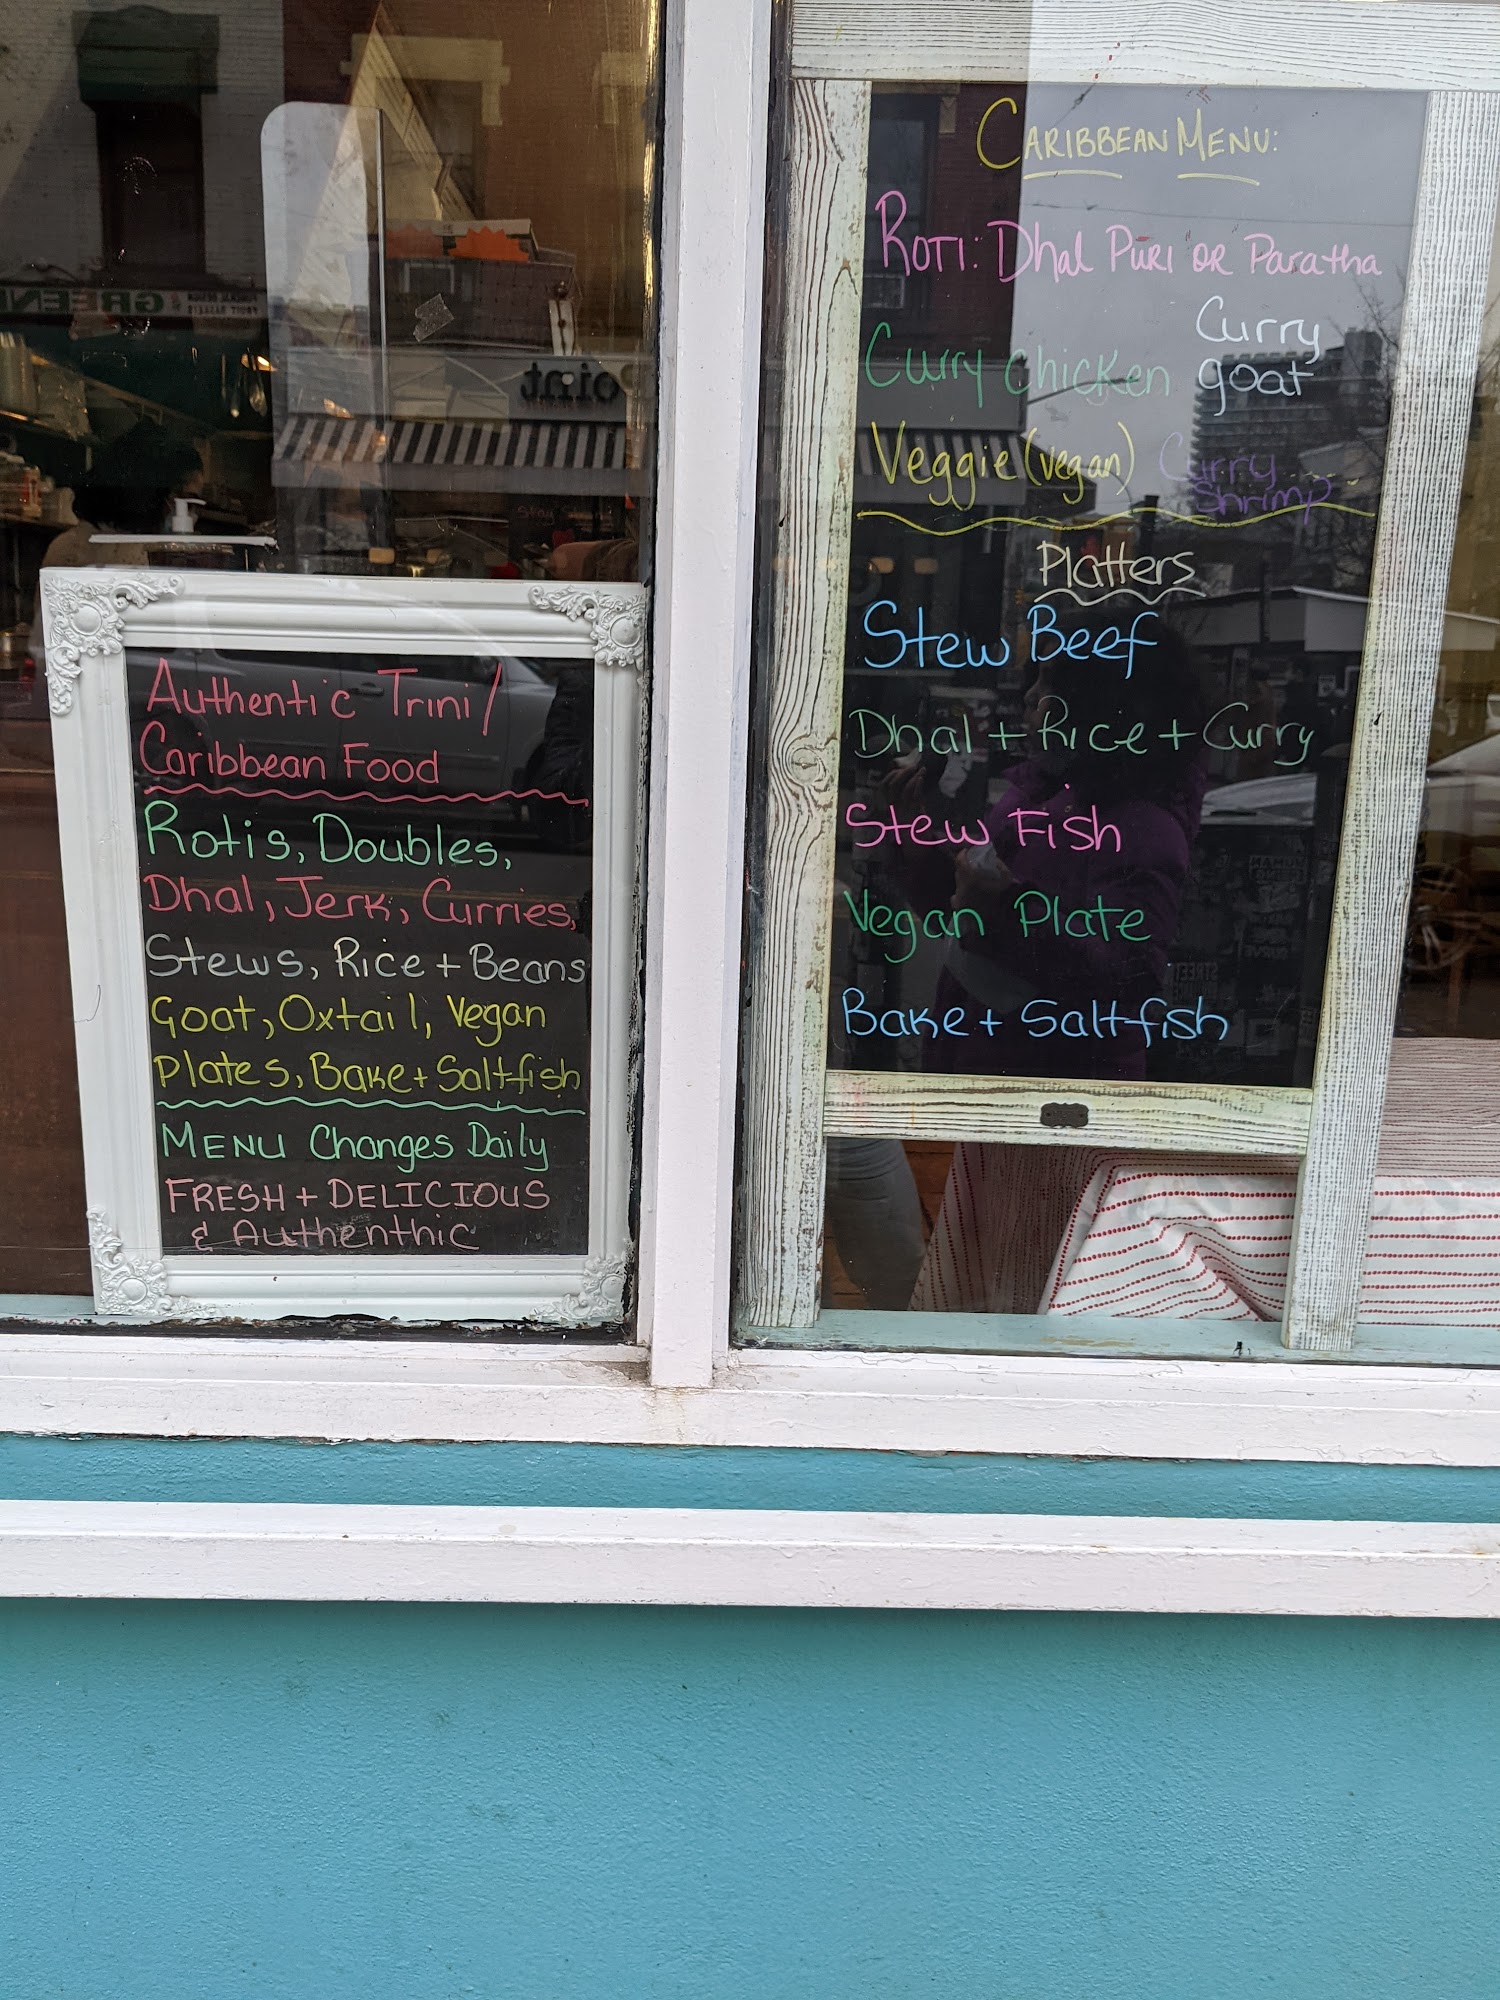 Authentic Trini/
Caribbean Food
Rotis, Doubles,
Dhal, Jerk, Curries,
Stews, Rice + Beans
Goat, Oxtail, Vegan
Plates, Bake + Saltfish
MENU Changes Daily
FRESH + DELICIOUS
& Authenthic
CARIBBEAN MENU:
ROTI: Dhal PURI OR Paratha
Curry Chicken Curry
goat
Veggie (vegan) Curry
Shrimp
Platters
Stew Beef
Dhal + Rice + Curry
Stew Fish
Vegan Plate
Bake + Saltfish
GREEN
Point